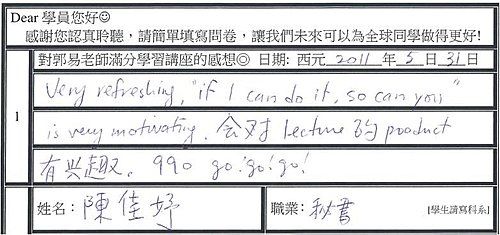 Dear 學員您好☺
感謝您認真聆聽，請簡單填寫問卷，讓我們未來可以為全球同學做得更好!
1
對郭易老師滿分學習講座的感想◎ 日期: 西元 2011 年 5 日 31 日
Very refreshing, "if I can do it, so can you"
is very motivating. 会对 lecture 的 product
有兴趣. 990 go! go! go!
姓名: 陳佳妤 職業: 秘書 [學生請寫科系]